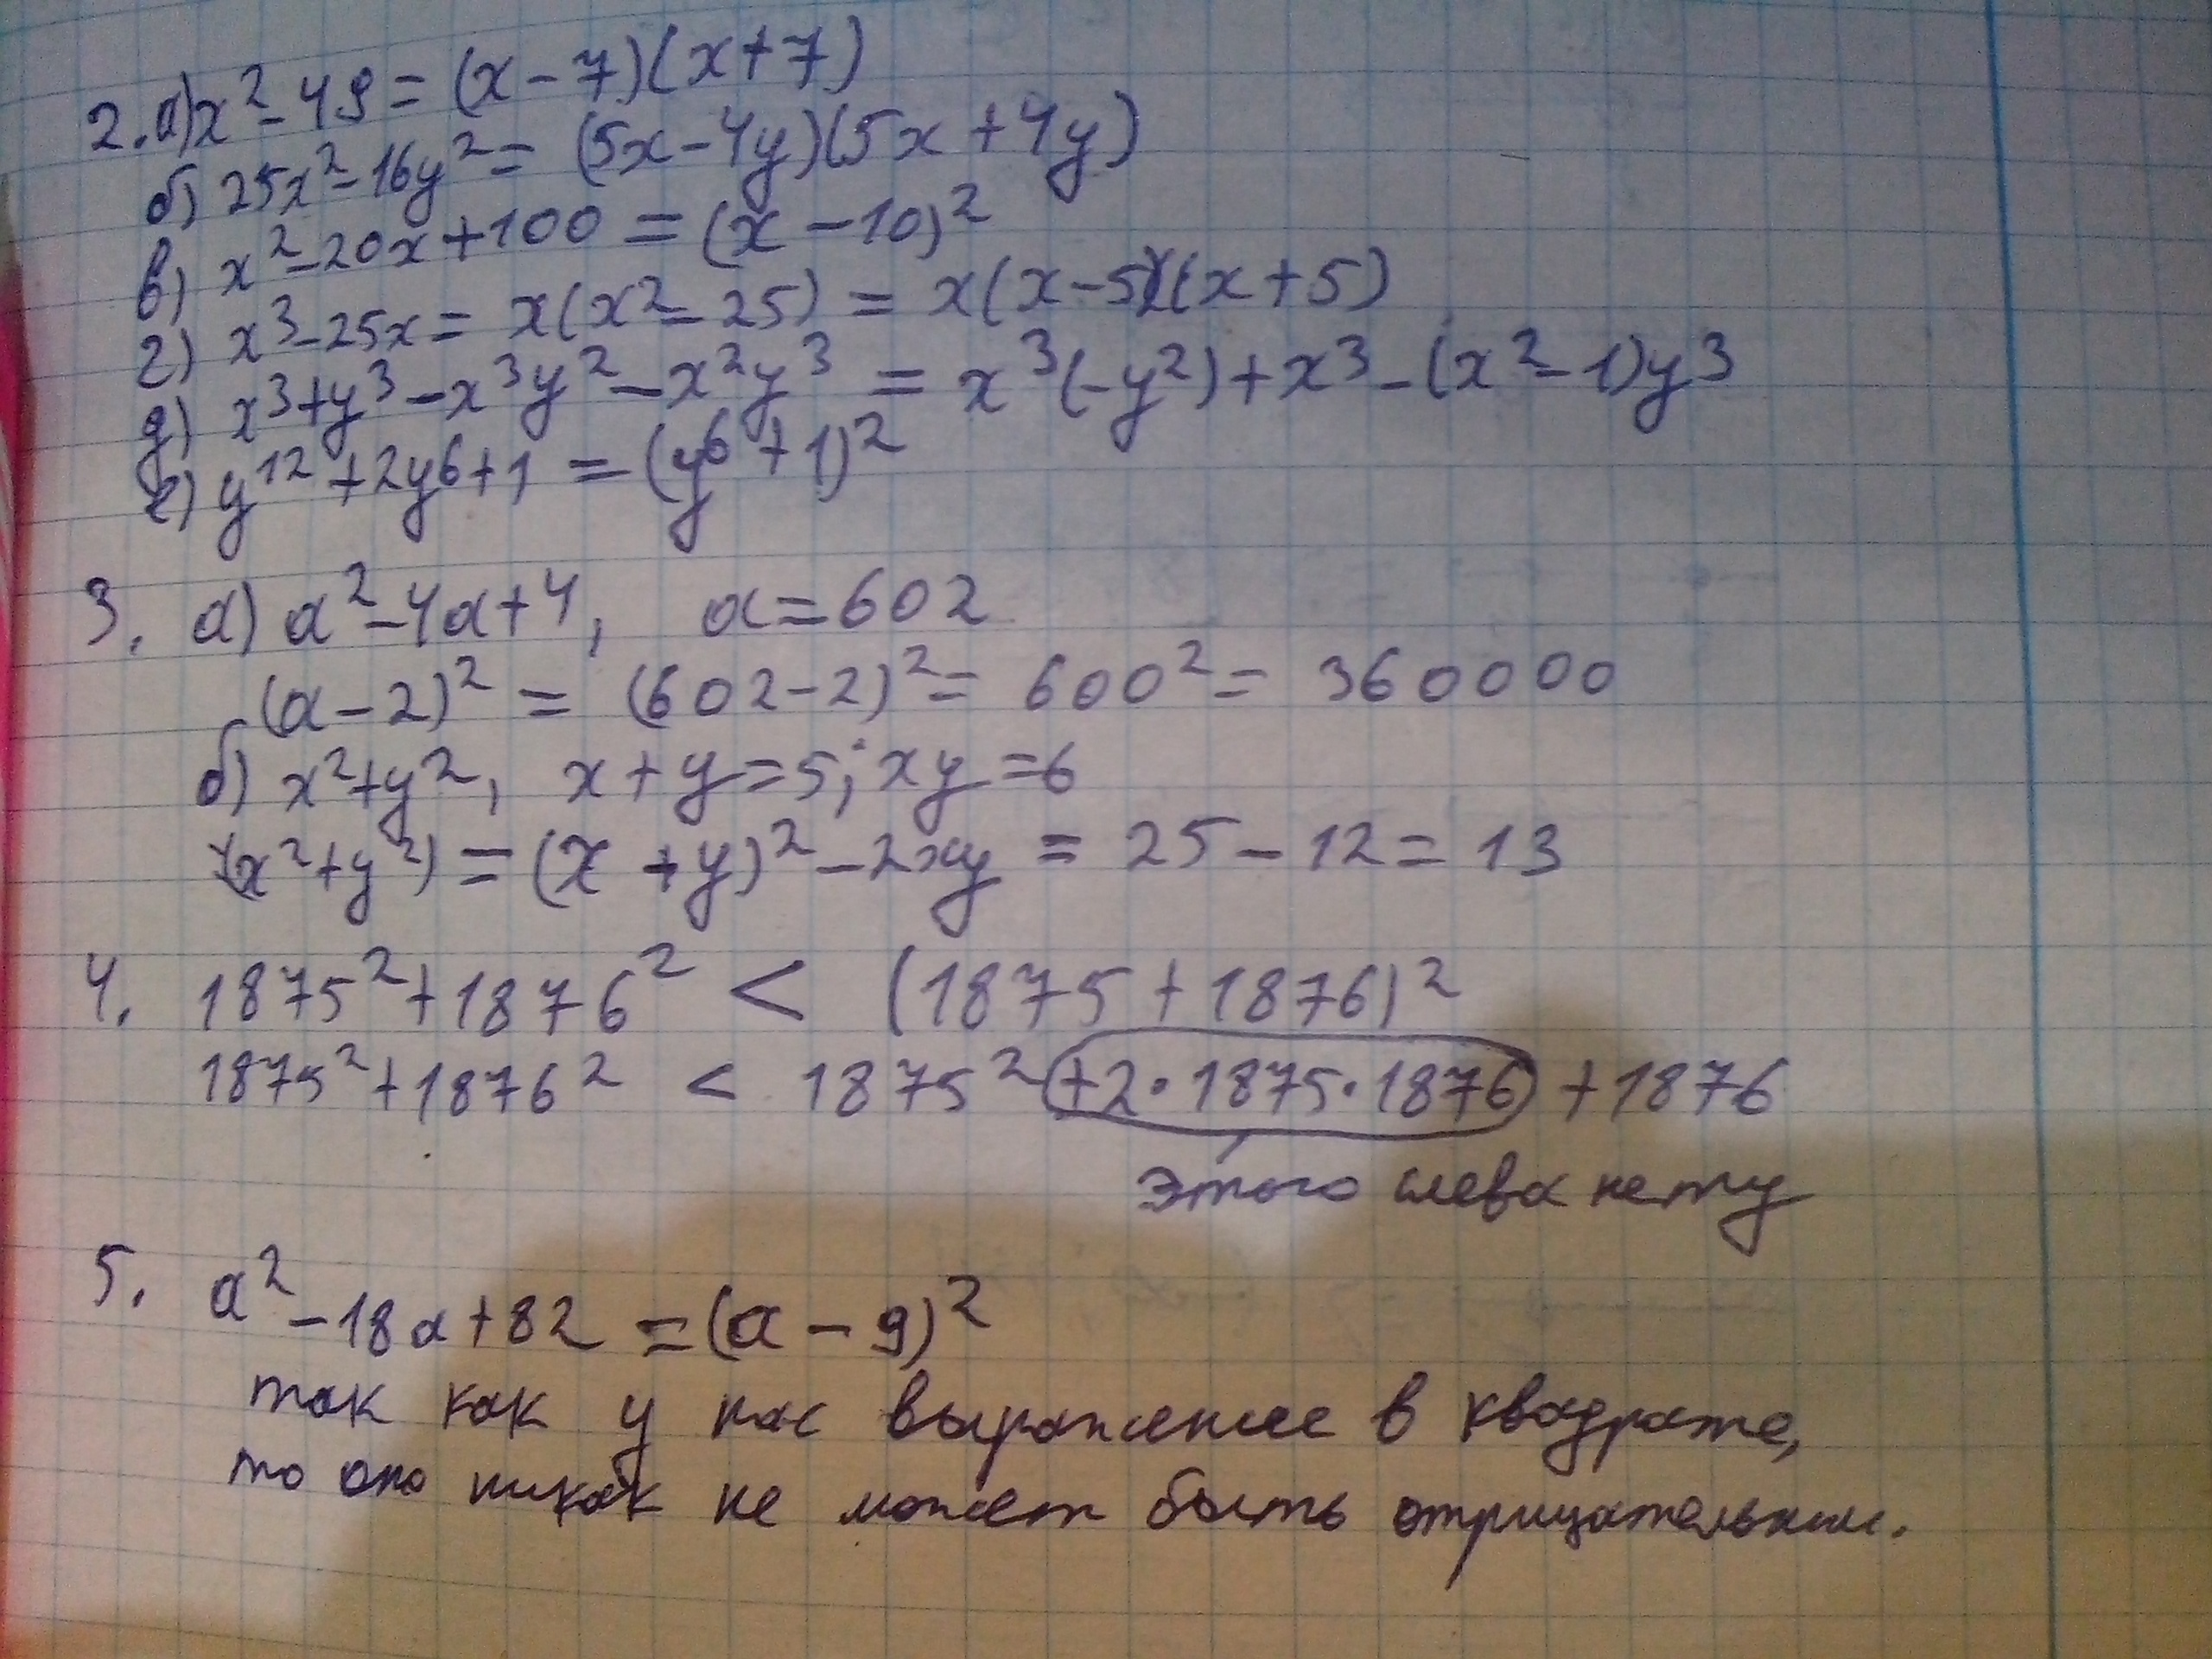 2. а) x² - 49 = (x - 7)(x + 7)
б) 25x² - 16y² = (5x - 4y)(5x + 4y)
в) x² - 20x + 100 = (x - 10)²
г) x³ - 25x = x(x² - 25) = x(x - 5)(x + 5)
д) x³ + y³ - x³y² - x²y³ = x³(-y²) + x³ - (x² - 1)y³
е) y¹² + 2y⁶ + 1 = (y⁶ + 1)²
3. а) a² - 4a + 4, a = 602
(a - 2)² = (602 - 2)² = 600² = 360000
б) x² + y², x + y = 5; xy = 6
(x² + y²) = (x + y)² - 2xy = 25 - 12 = 13
4. 1875² + 1876² < (1875 + 1876)²
1875² + 1876² < 1875² + 2·1875·1876 + 1876
этого слева нету
5. a² - 18a + 82 = (a - 9)²
так как у нас выражение в квадрате,
то оно никак не может быть отрицательным.